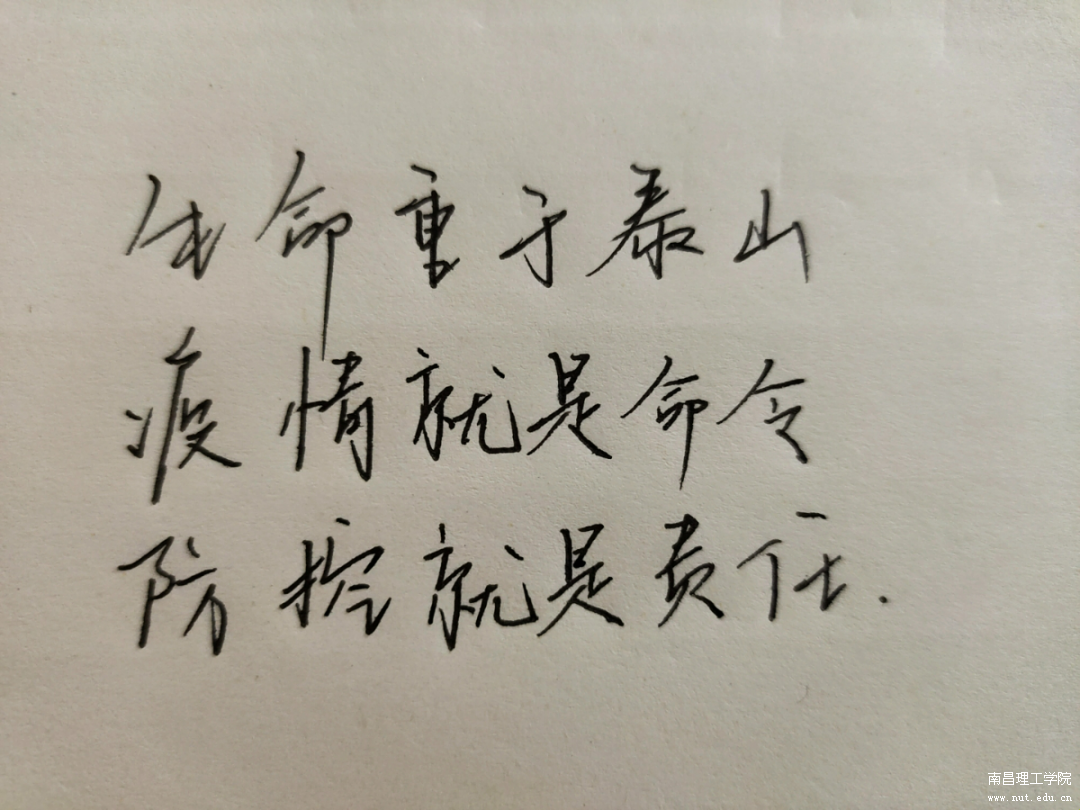 生命重于泰山
疫情就是命令
防控就是责任.
南昌理工学院
www.nut.edu.cn